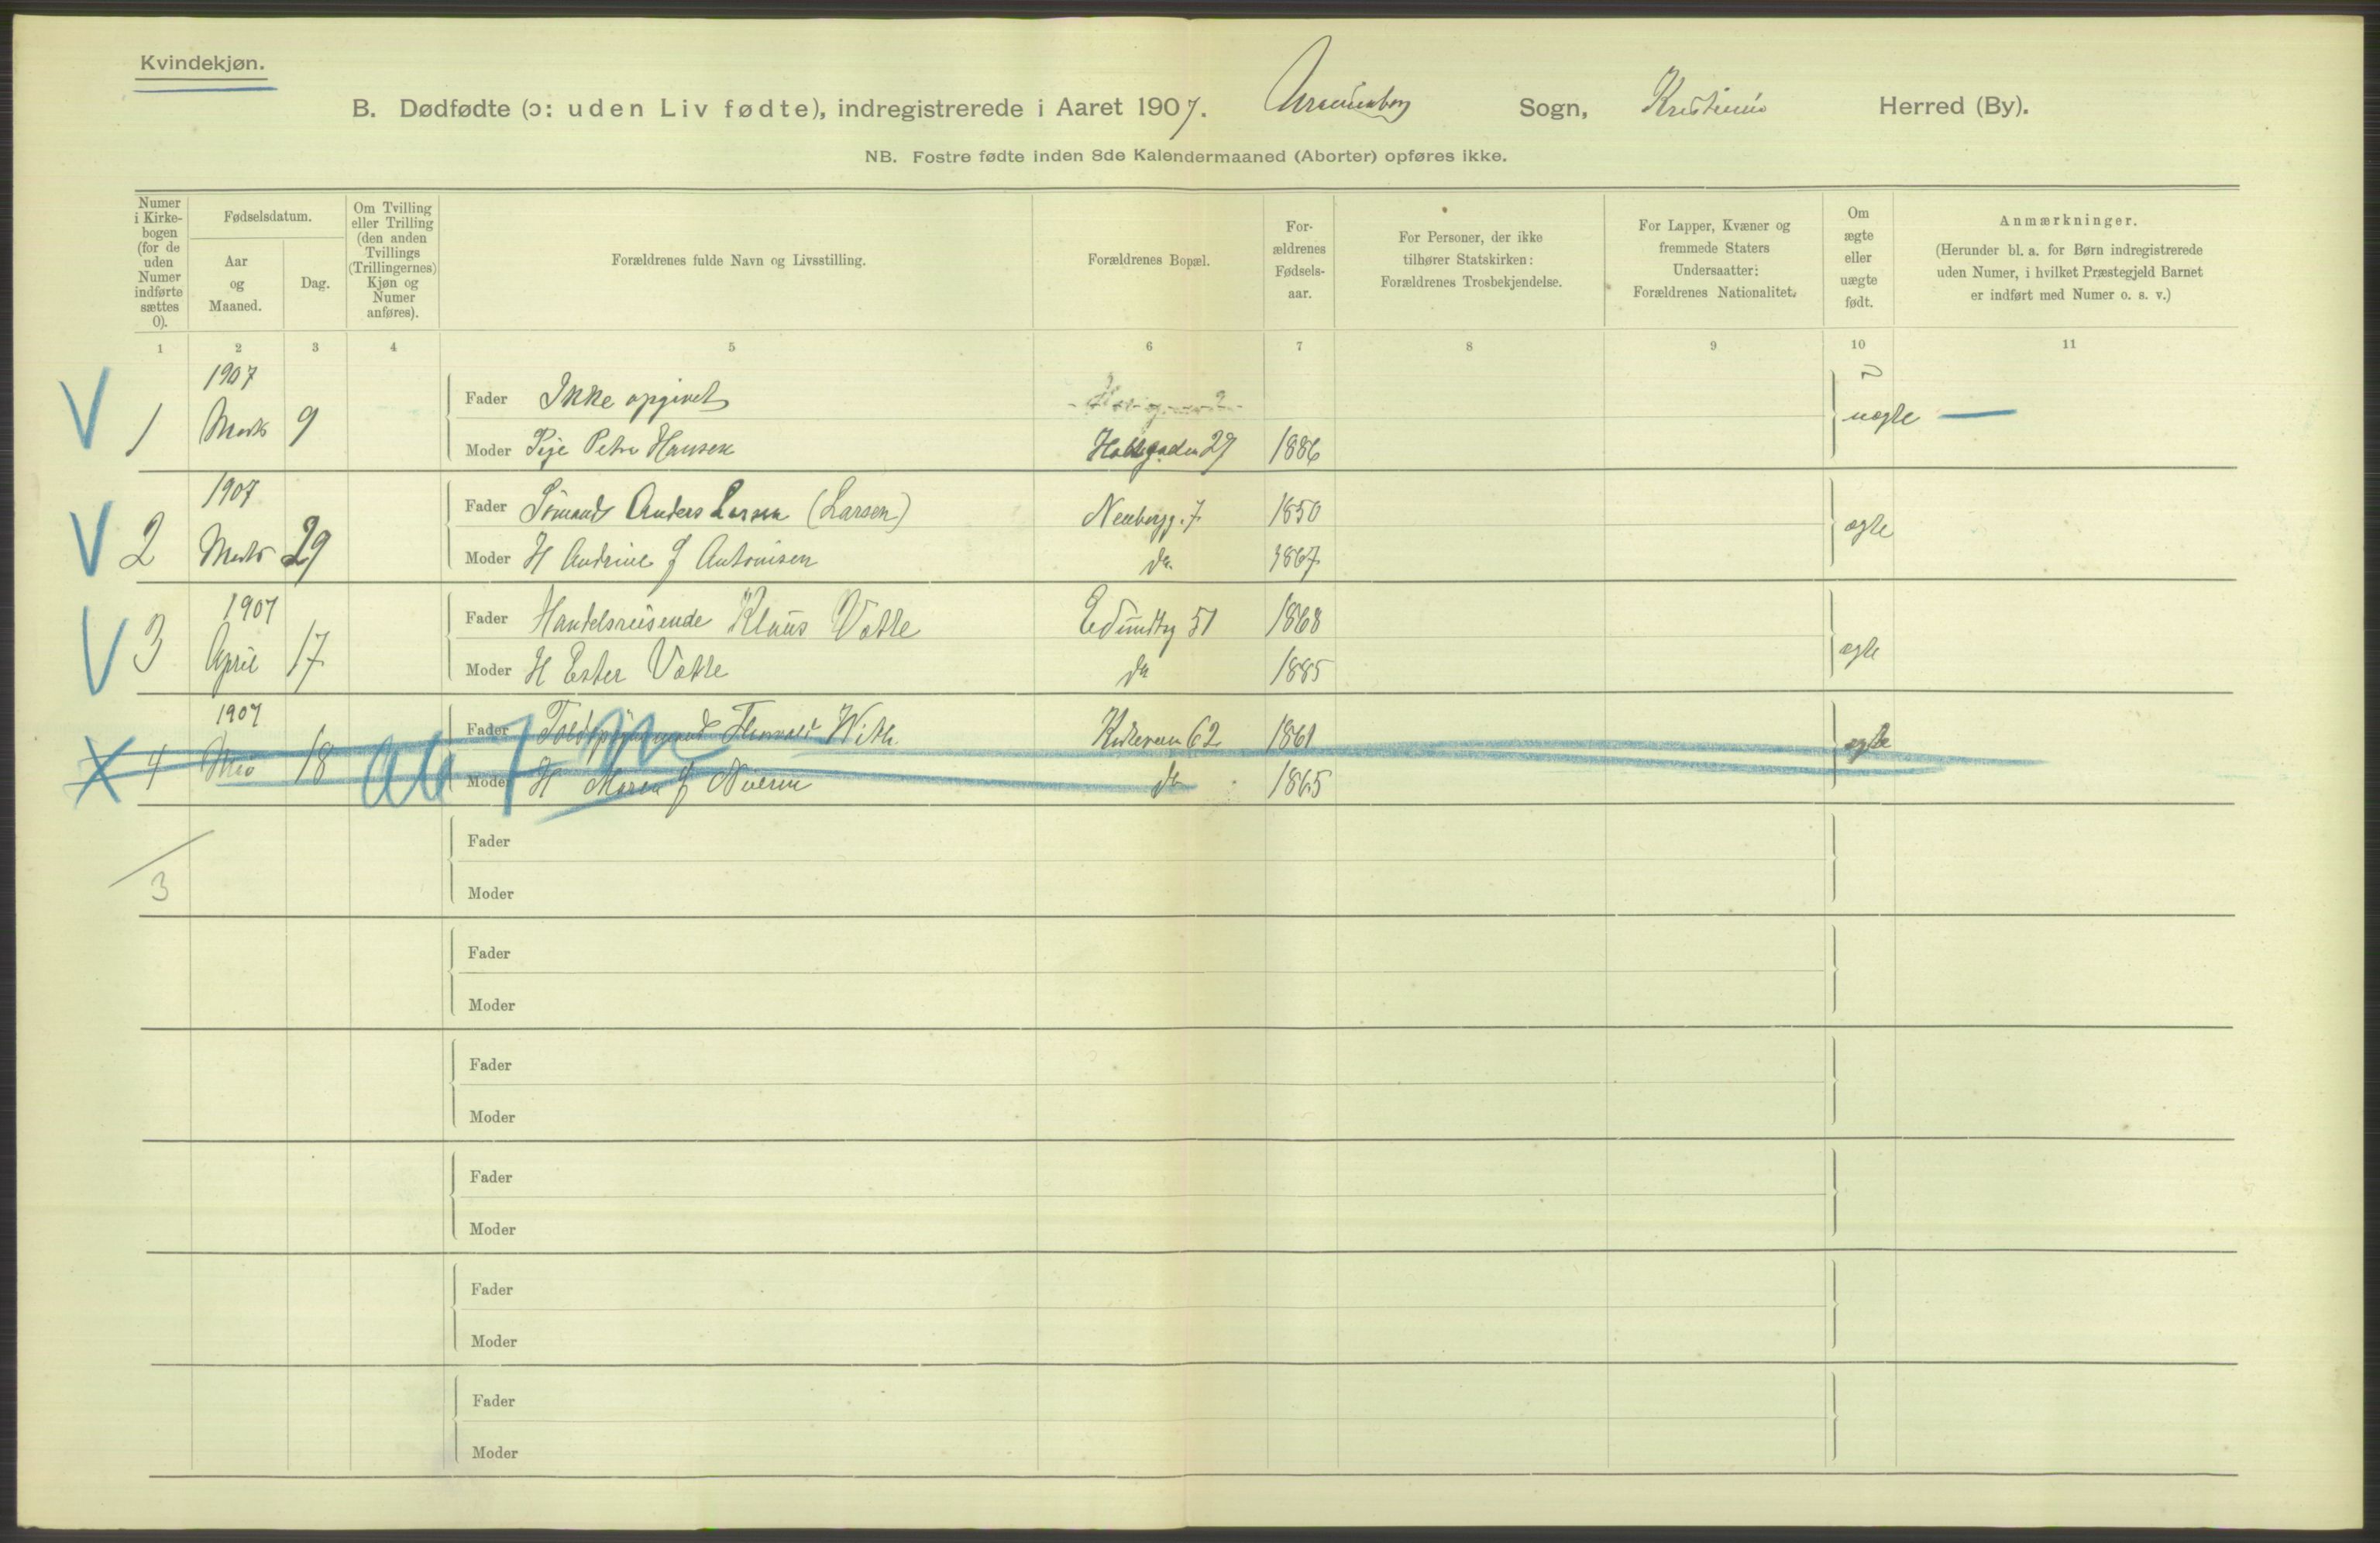 Kvindekjøn.
B. Dødfødte (ɔ: uden Liv fødte), indregistrerede i Aaret 1907. Uranienborg Sogn, Kristiania Herred (By).
NB. Fostre fødte inden 8de Kalendermaaned (Aborter) opføres ikke.
Numer i Kirkebogen (for de uden Numer indførte sættes 0).
Fødselsdatum.
Aar og Maaned.
Dag.
Om Tvilling eller Trilling (den anden Tvillings (Trillingernes) Kjøn og Numer anføres).
Forældrenes fulde Navn og Livsstilling.
Forældrenes Bopæl.
Forældrenes Fødselsaar.
For Personer, der ikke tilhører Statskirken: Forældrenes Trosbekjendelse.
For Lapper, Kvæner og fremmede Staters Undersaatter: Forældrenes Nationalitet.
Om ægte eller uægte født.
Anmærkninger.
(Herunder bl. a. for Børn indregistrerede uden Numer, i hvilket Præstegjeld Barnet er indført med Numer o. s. v.)
1 2 3 4 5 6 7 8 9 10 11
V 1 1907 Marts 9
Fader Ikke opgivet
Moder Petra Hansen 29 1886
uægte —
V 2 1907 Marts 29
Fader Sømand Anders Larsen (Larsen) Neubergg. 7 1850
Moder H Andrine f Antonisen do. 1867
ægte
V 3 1907 April 17
Fader Handelsreisende Klaus Vatle 51 1868
Moder H Ester Vatle do 1885
ægte
X 4 1907 Mai 18
Fader Thorvald With Kirkeveien 62 1861
Moder H Maren f do 1865
ægte
3
Fader
Moder
Fader
Moder
Fader
Moder
Fader
Moder
Fader
Moder
Fader
Moder